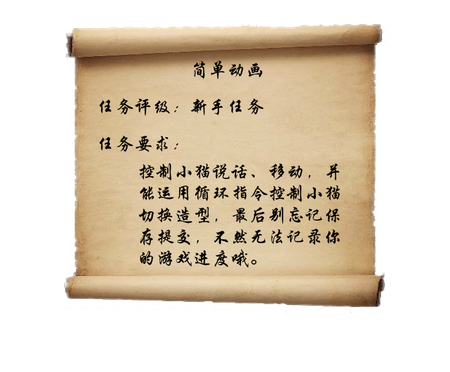 简单动画
任务评级：新手任务
任务要求：
控制小猫说话、移动，并
能运用循环指令控制小猫
切换造型，最后别忘记保
存提交，不然无法记录你
的游戏进度哦。